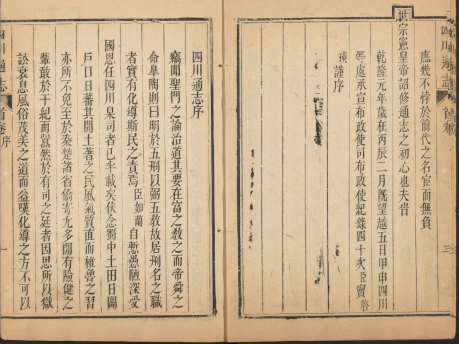 四川通志 首卷 序
庶幾不悖於前代之名宦而無負
世宗憲皇帝詔修通志之初心也夫旹
乾隆元年歲在丙辰二月既望越五日甲申四川
等處承宣布政使司布政使紀錄四十次臣竇啓
瑛謹序
四川通志序
竊聞聖門之論治道其要在富之教之而帝舜之
命臯陶則曰明於五刑以弼五教故居刑名之職
者實有化導斯民之責焉臣如蘭自慙愚陋深受
國恩任四川臬司者已半載矣伏念蜀中土田日闢
戶口日蕃其間土著之民風氣質直而椎魯之習
亦所不免至於秦楚諸省僑寄尤多間有險健之
輩敢於干紀而囂然於有司之廷者因思所以獄
訟衰息風俗茂美之道而益嘆化導之方不可以
四川通志 首卷 序 一